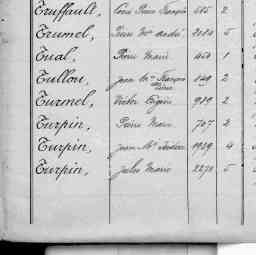 Truffault, Louis Pierre François 585 2
Trumel, Pierre Mie André 2080 5
Tual, Pierre Marie 450 1
Tullou, Jean Mie François 849 2
Pierre
Turmel, Victor Eugène 929 2
Turpin, Pierre Marie 707 2
Turpin, Jean Mie 1929 4
Turpin, Jules Marie 2278 5